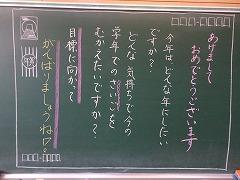 あけまして
おめでとうございます
今年はどんな年にしたい
ですか？
どんな気持ちで今の
学年でのさいごを
むかえたいですか？
目標に向かって
がんばりましょうね！